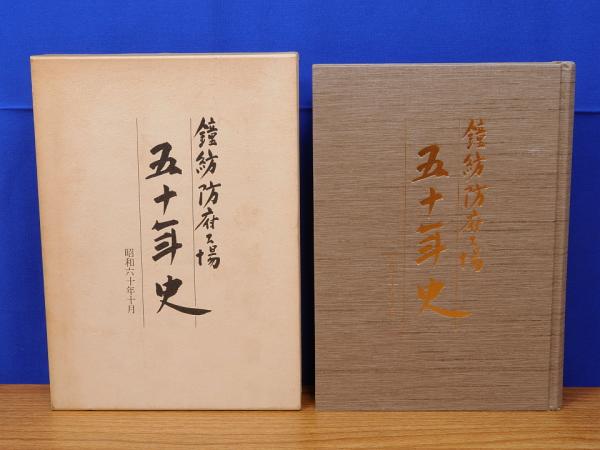 鐘紡防府工場
五十年史
昭和六十年十月
鐘紡防府工場
五十年史